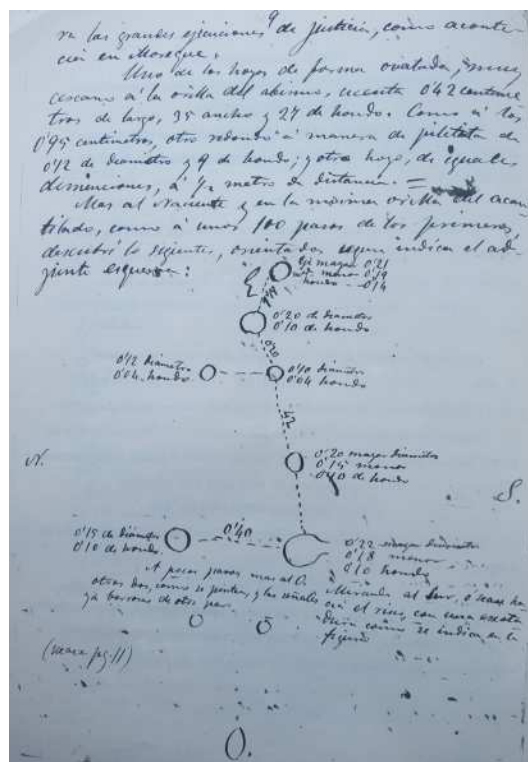 9
ra las grandes ejecuciones de justicia, como aconte-
cia en Moreque.
Uno de los hoyos de forma ovalada, muy
cercano á la orilla del abismo, cuenta 0'42 centime
tros de largo, 35 ancho y 27 de hondo. Como á los
0'95 centimetros, otro redondo á manera de pileta de
0'12 de diametro y 9 de hondo; y otro hoyo, de iguales
dimenciones, á 1/2 metro de distancia. =
Mas al Naciente y en la misma orilla del acan
tilado, como á unos 100 pasos de los primeros,
descubri lo siguiente, orientados segun indica el ad-
junto esquema:
E.
eje mayor 0'21
menor 0'19
hondo 0'14
0'20 de diametro
0'10 de hondo
0'20
0'12 diametro
0'04 hondo
0'10 diametro
0'04 hondo
42
0'20 mayor diametro
0'15 menor
0'10 de hondo
N.
S.
0'15 de diametro
0'10 de hondo
0'40
0'22 mayor diametro
0'18 menor
0'10 hondo
A pocos pasos mas al O.
otros dos, como se pintan, y las señales
ya borrosas de otro par.
Mirando al Sur, ó sea
con una
como se indica en la
figura
(vease pg. 11)
O.